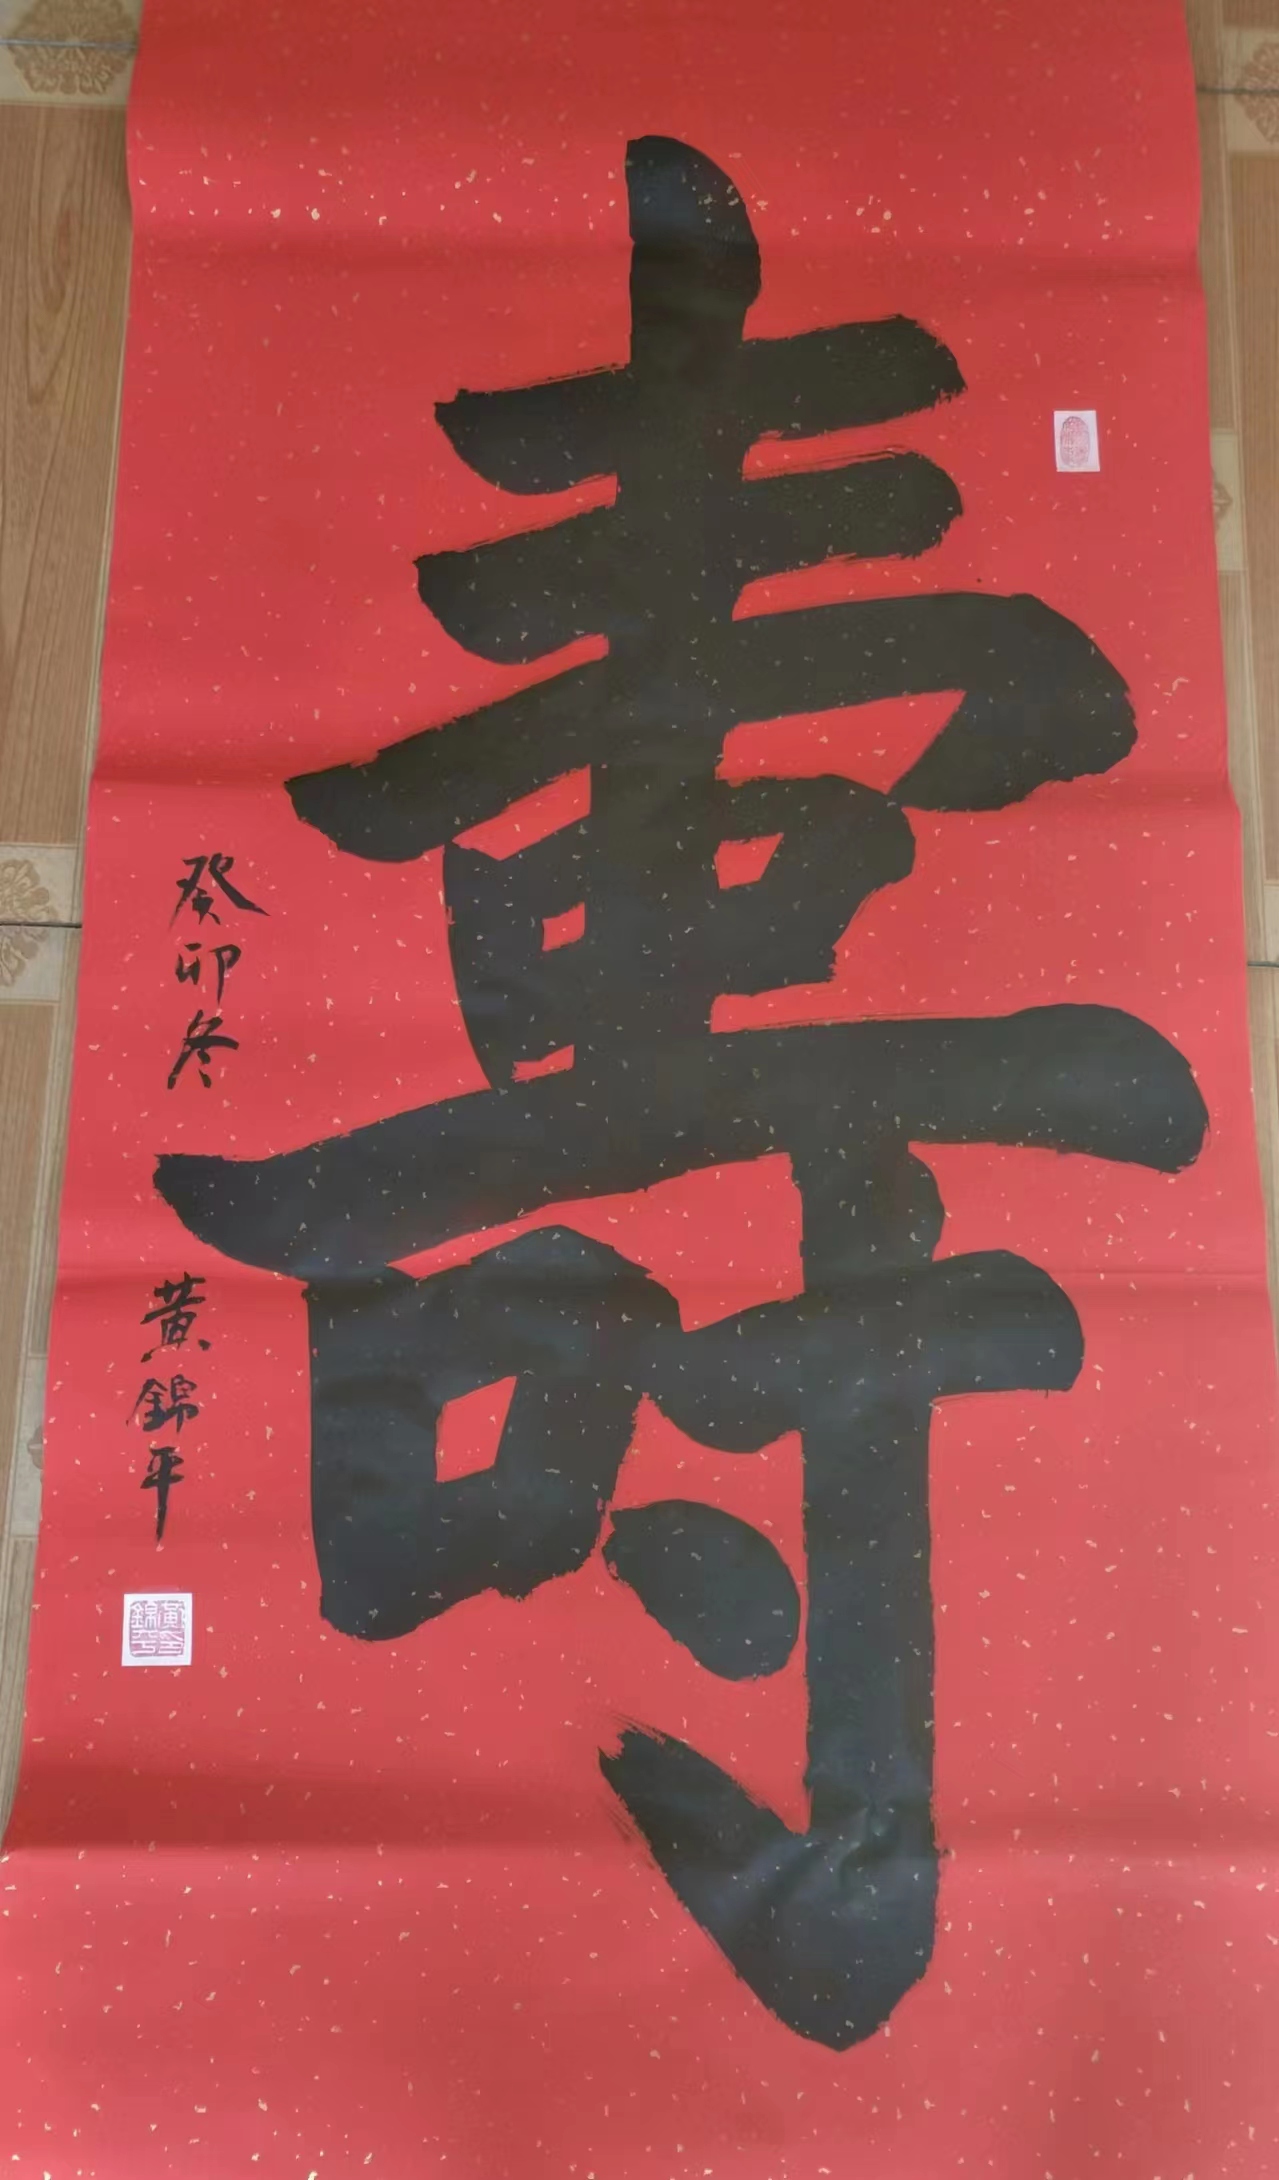 壽
癸卯冬
黃錦平